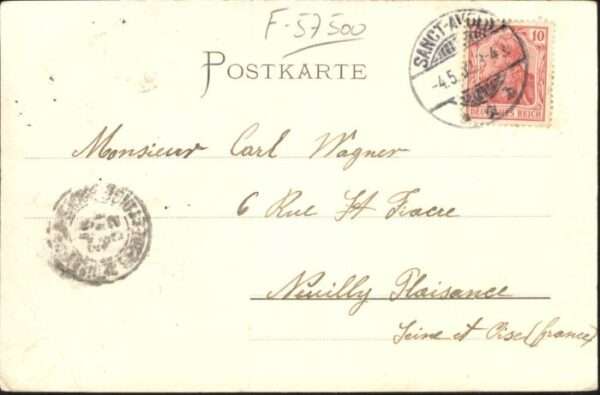 F-57500
POSTKARTE
SANCT-AVOLD
10
DEUTSCHES REICH
Monsieur Carl Wagner
6 Rue St Fiacre
Neuilly Plaisance
Seine et Oise (france)